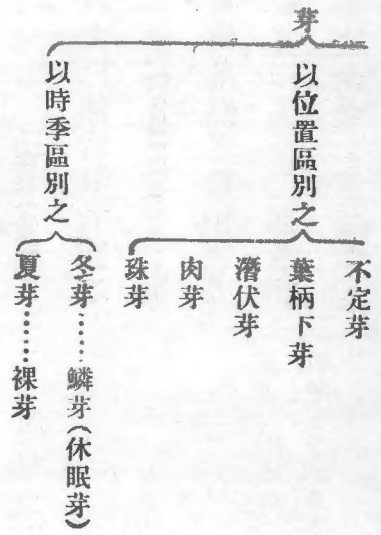 芽
以位置區別之
不定芽
葉柄下芽
潛伏芽
肉芽
珠芽
以時季區別之
冬芽……鱗芽(休眠芽)
夏芽……裸芽